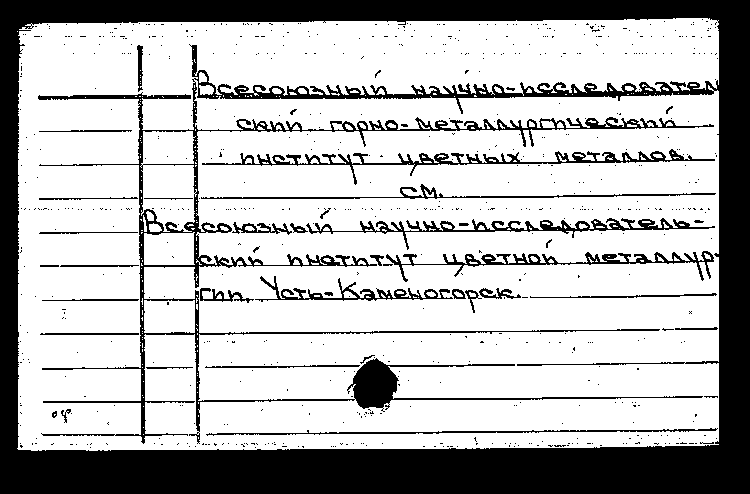 Всесоюзный научно-исследователь
ский горно-металлургический
институт цветных металлов.
см.
Всесоюзный научно-исследователь-
ский институт цветной металлур-
гии. Усть-Каменогорск.